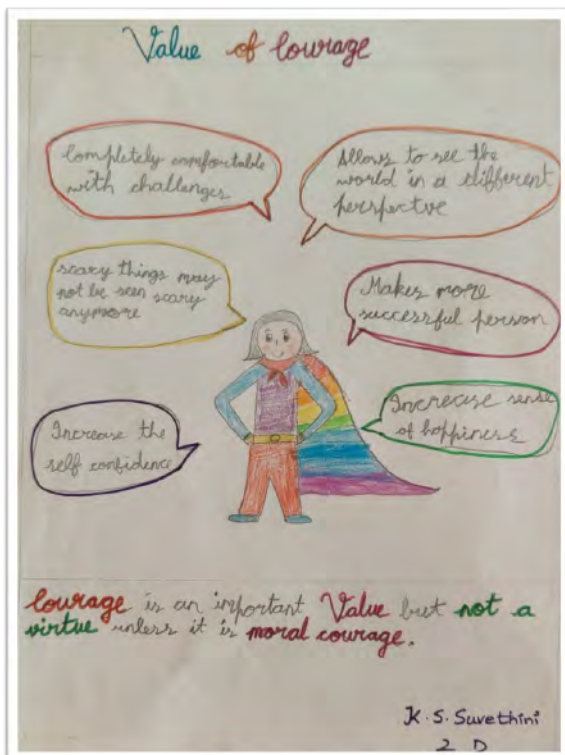 Value of Courage
Completely comfortable
with challenges
Allows to see the
world in a different
perspectve
scary things may
not be seen scary
anymore
Makes more
successful person
Increase the
self confidence
Increase sense
of happiness
Courage is an important Value but not a
virtue unless it is moral courage.
K.S.Suvethini
2 D